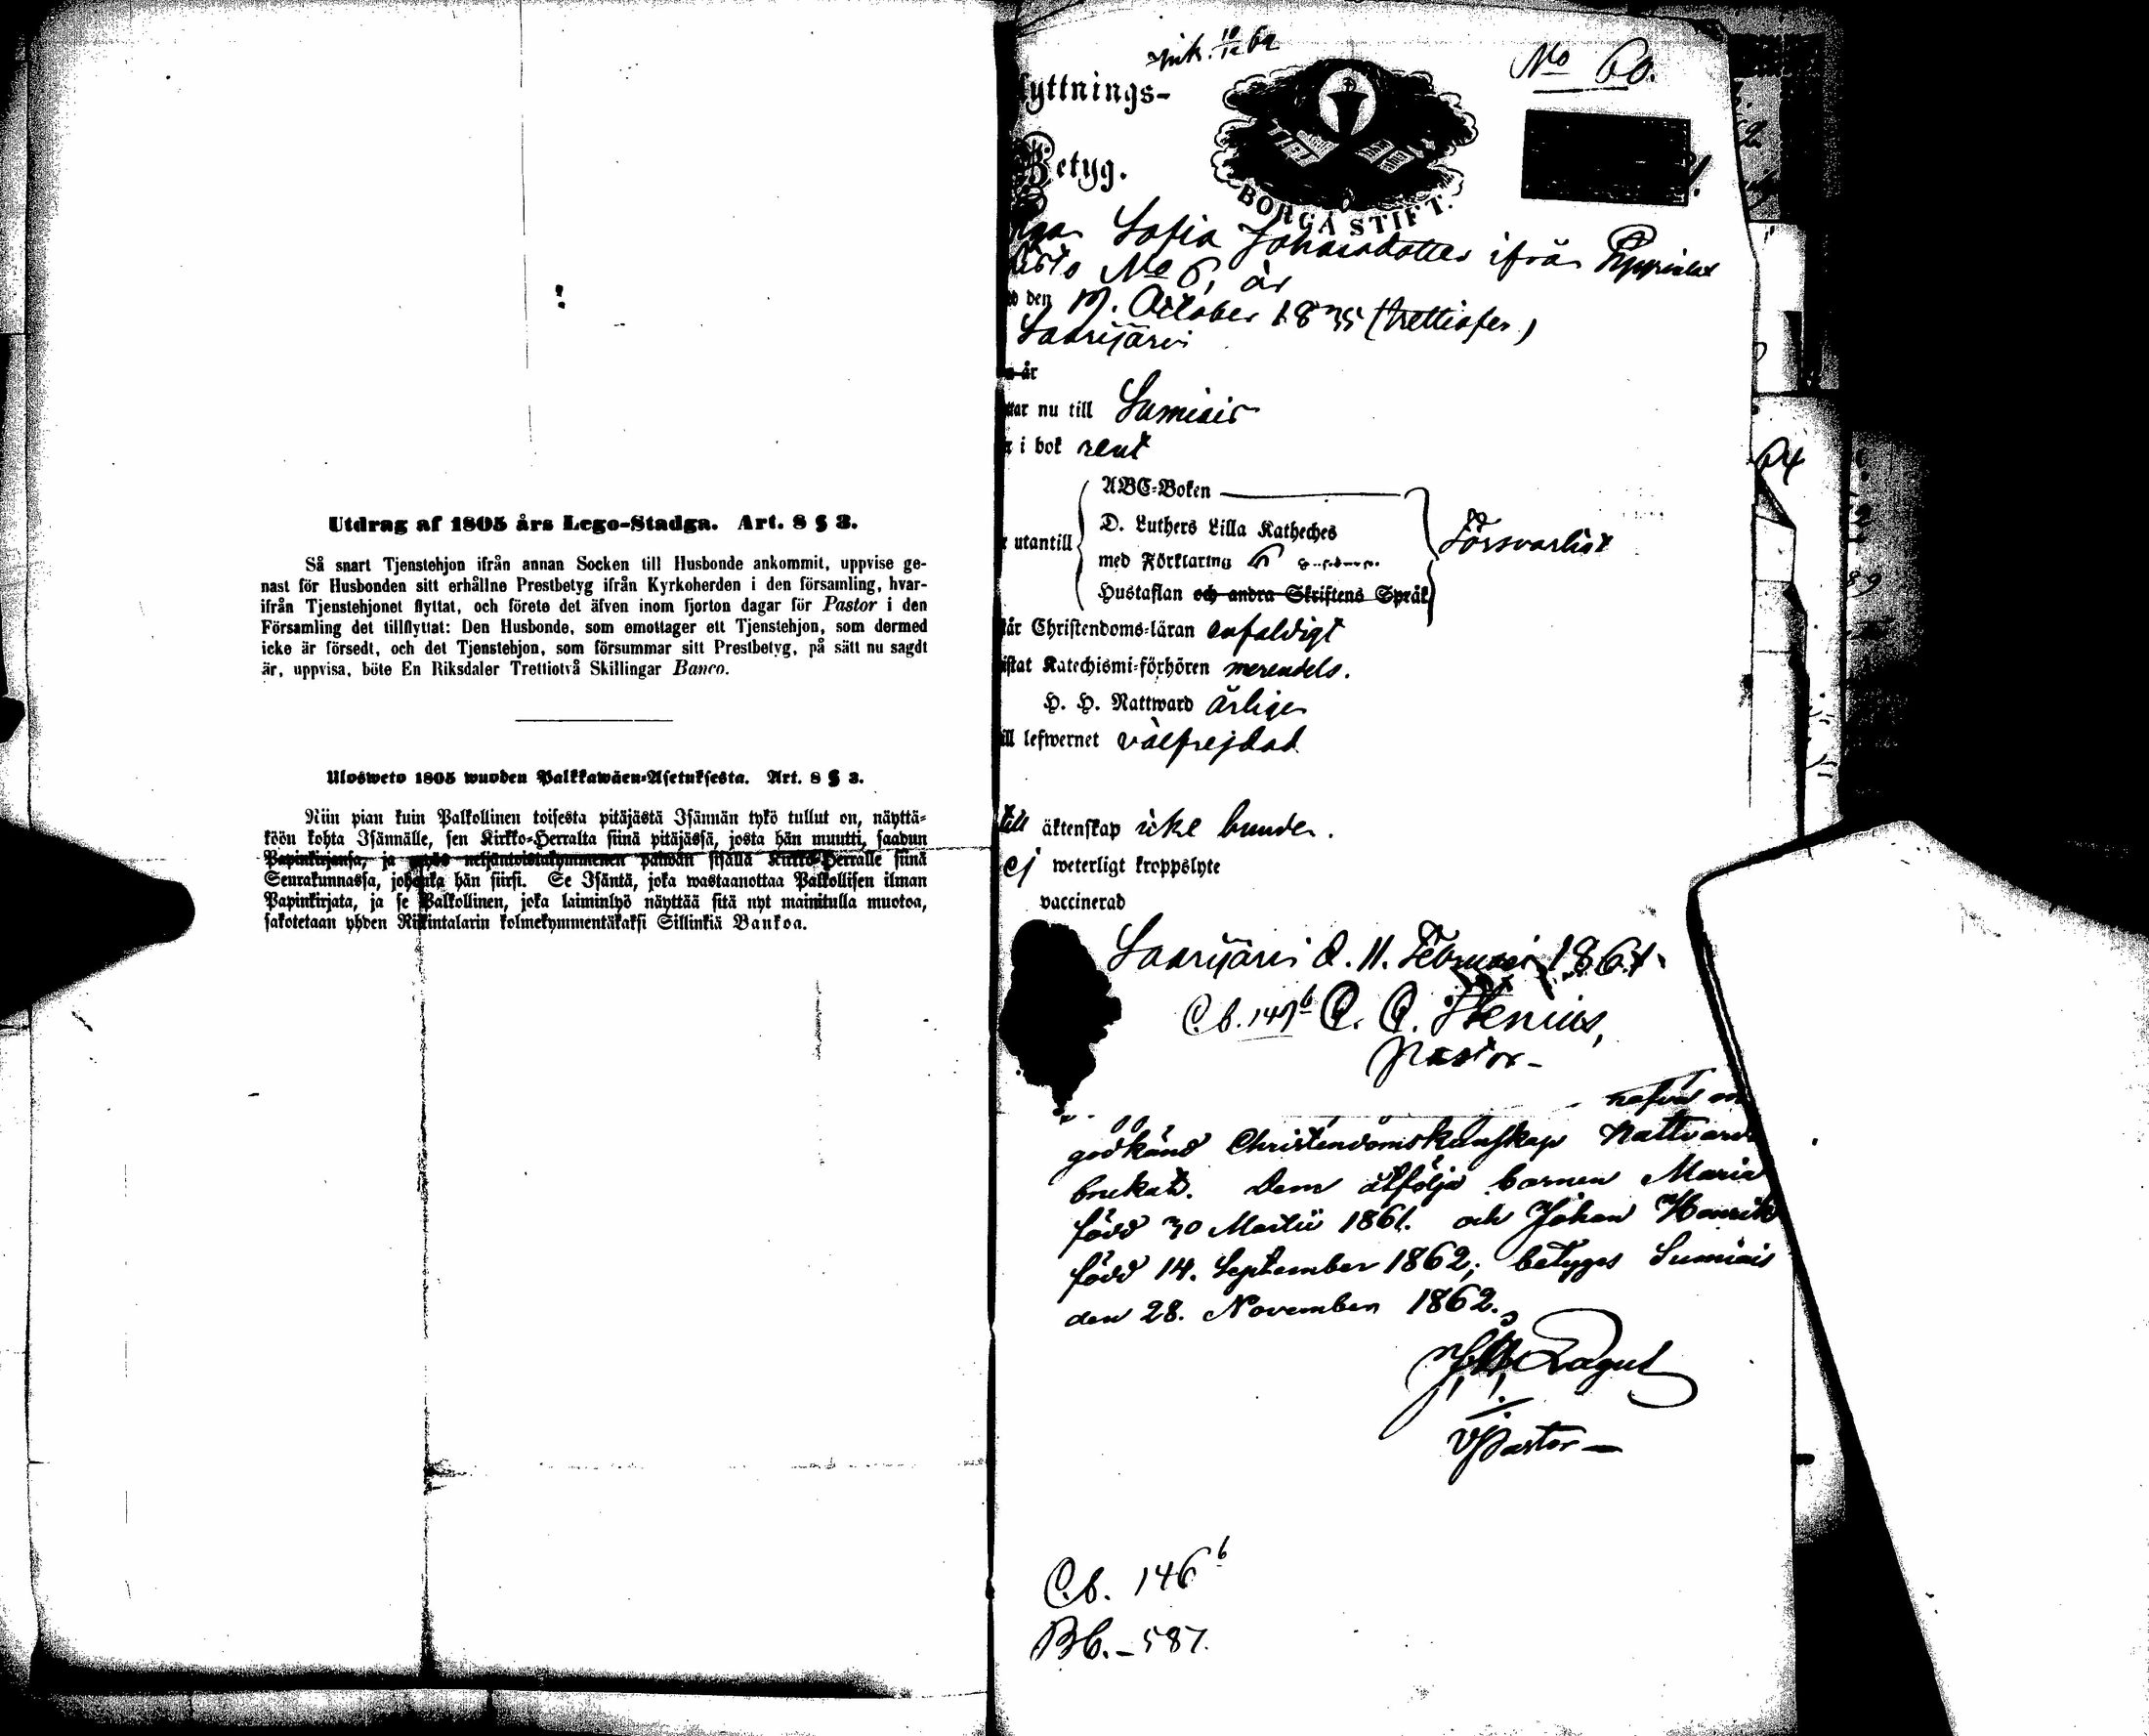 Utdrag af 1805 års Lego-Stadga. Art. 8 § 3.
Så snart Tjenstehjon ifrån annan Socken till Husbonde ankommit, uppvise ge-
nast för Husbonden sitt erhållne Prestbetyg ifrån Kyrkoherden i den församling, hvar-
ifrån Tjenstehjonet flyttat, och förete det äfven inom fjorton dagar för Pastor i den
Församling det tillflyttat: Den Husbonde, som emottager ett Tjenstehjon, som dermed
icke är försedt, och det Tjenstehjon, som försummar sitt Prestbetyg, på sätt nu sagdt
är, uppvisa, böte En Riksdaler Trettiotvå Skillingar Banco.
Ulosweto 1805 wuoden Palkkawäen-Asetuksesta. Art. 8 § 3.
Niin pian kuin Palkollinen toisesta pitäjästä Isännän tykö tullut on, näyttä-
köön kohta Isännälle, sen Kirkko-Herralta siinä pitäjässä, josta hän muutti, saadun
Papinkirjansa, ja myös neljäntoistakymmenen päiwän sisällä Kirkko-Herralle siinä
Seurakunnassa, johonka hän siirsi. Se Isäntä, joka wastaanottaa Palkollisen ilman
Papinkirjata, ja se Palkollinen, joka laiminlyö näyttää sitä nyt mainitulla muotoa,
sakotetaan yhden Riikintalarin kolmekymmentäkaksi Sillinkiä Bankoa.
No 60.
yttnings-
Betyg.
BORGÅ STIFT.
Sofia Johansdotter ifrån
No 6, är
den 17. October 1835 (trettiofem)
Saarijärvi
år
tar nu till Sumiais
i bok rent
ABC-Boken
D. Luthers Lilla Katheches
utantill med Förklaring Försvarligt
Hustaflan och andra Skriftens Språk
Christendoms-läran enfaldigt
istat Katechismi-förhören merendels.
H. H. Nattward årligen
ill lefwernet välfrejdad
till äktenskap icke bunden.
ej weterligt kroppslyte
vaccinerad
Saarijärvi d. 11. Februari 1861.
C.b. 147 b C. C. Stenius,
Pastor
godkänd Christendomskunskap Nattvard
brukat. Dem åtfölja barnen Maria
född 30 Martii 1861. och Johan Henrik
född 14. September 1862; betyges Sumiais
den 28. November 1862.
Lagus
VPastor
C.b. 146 b
Bb. 587.